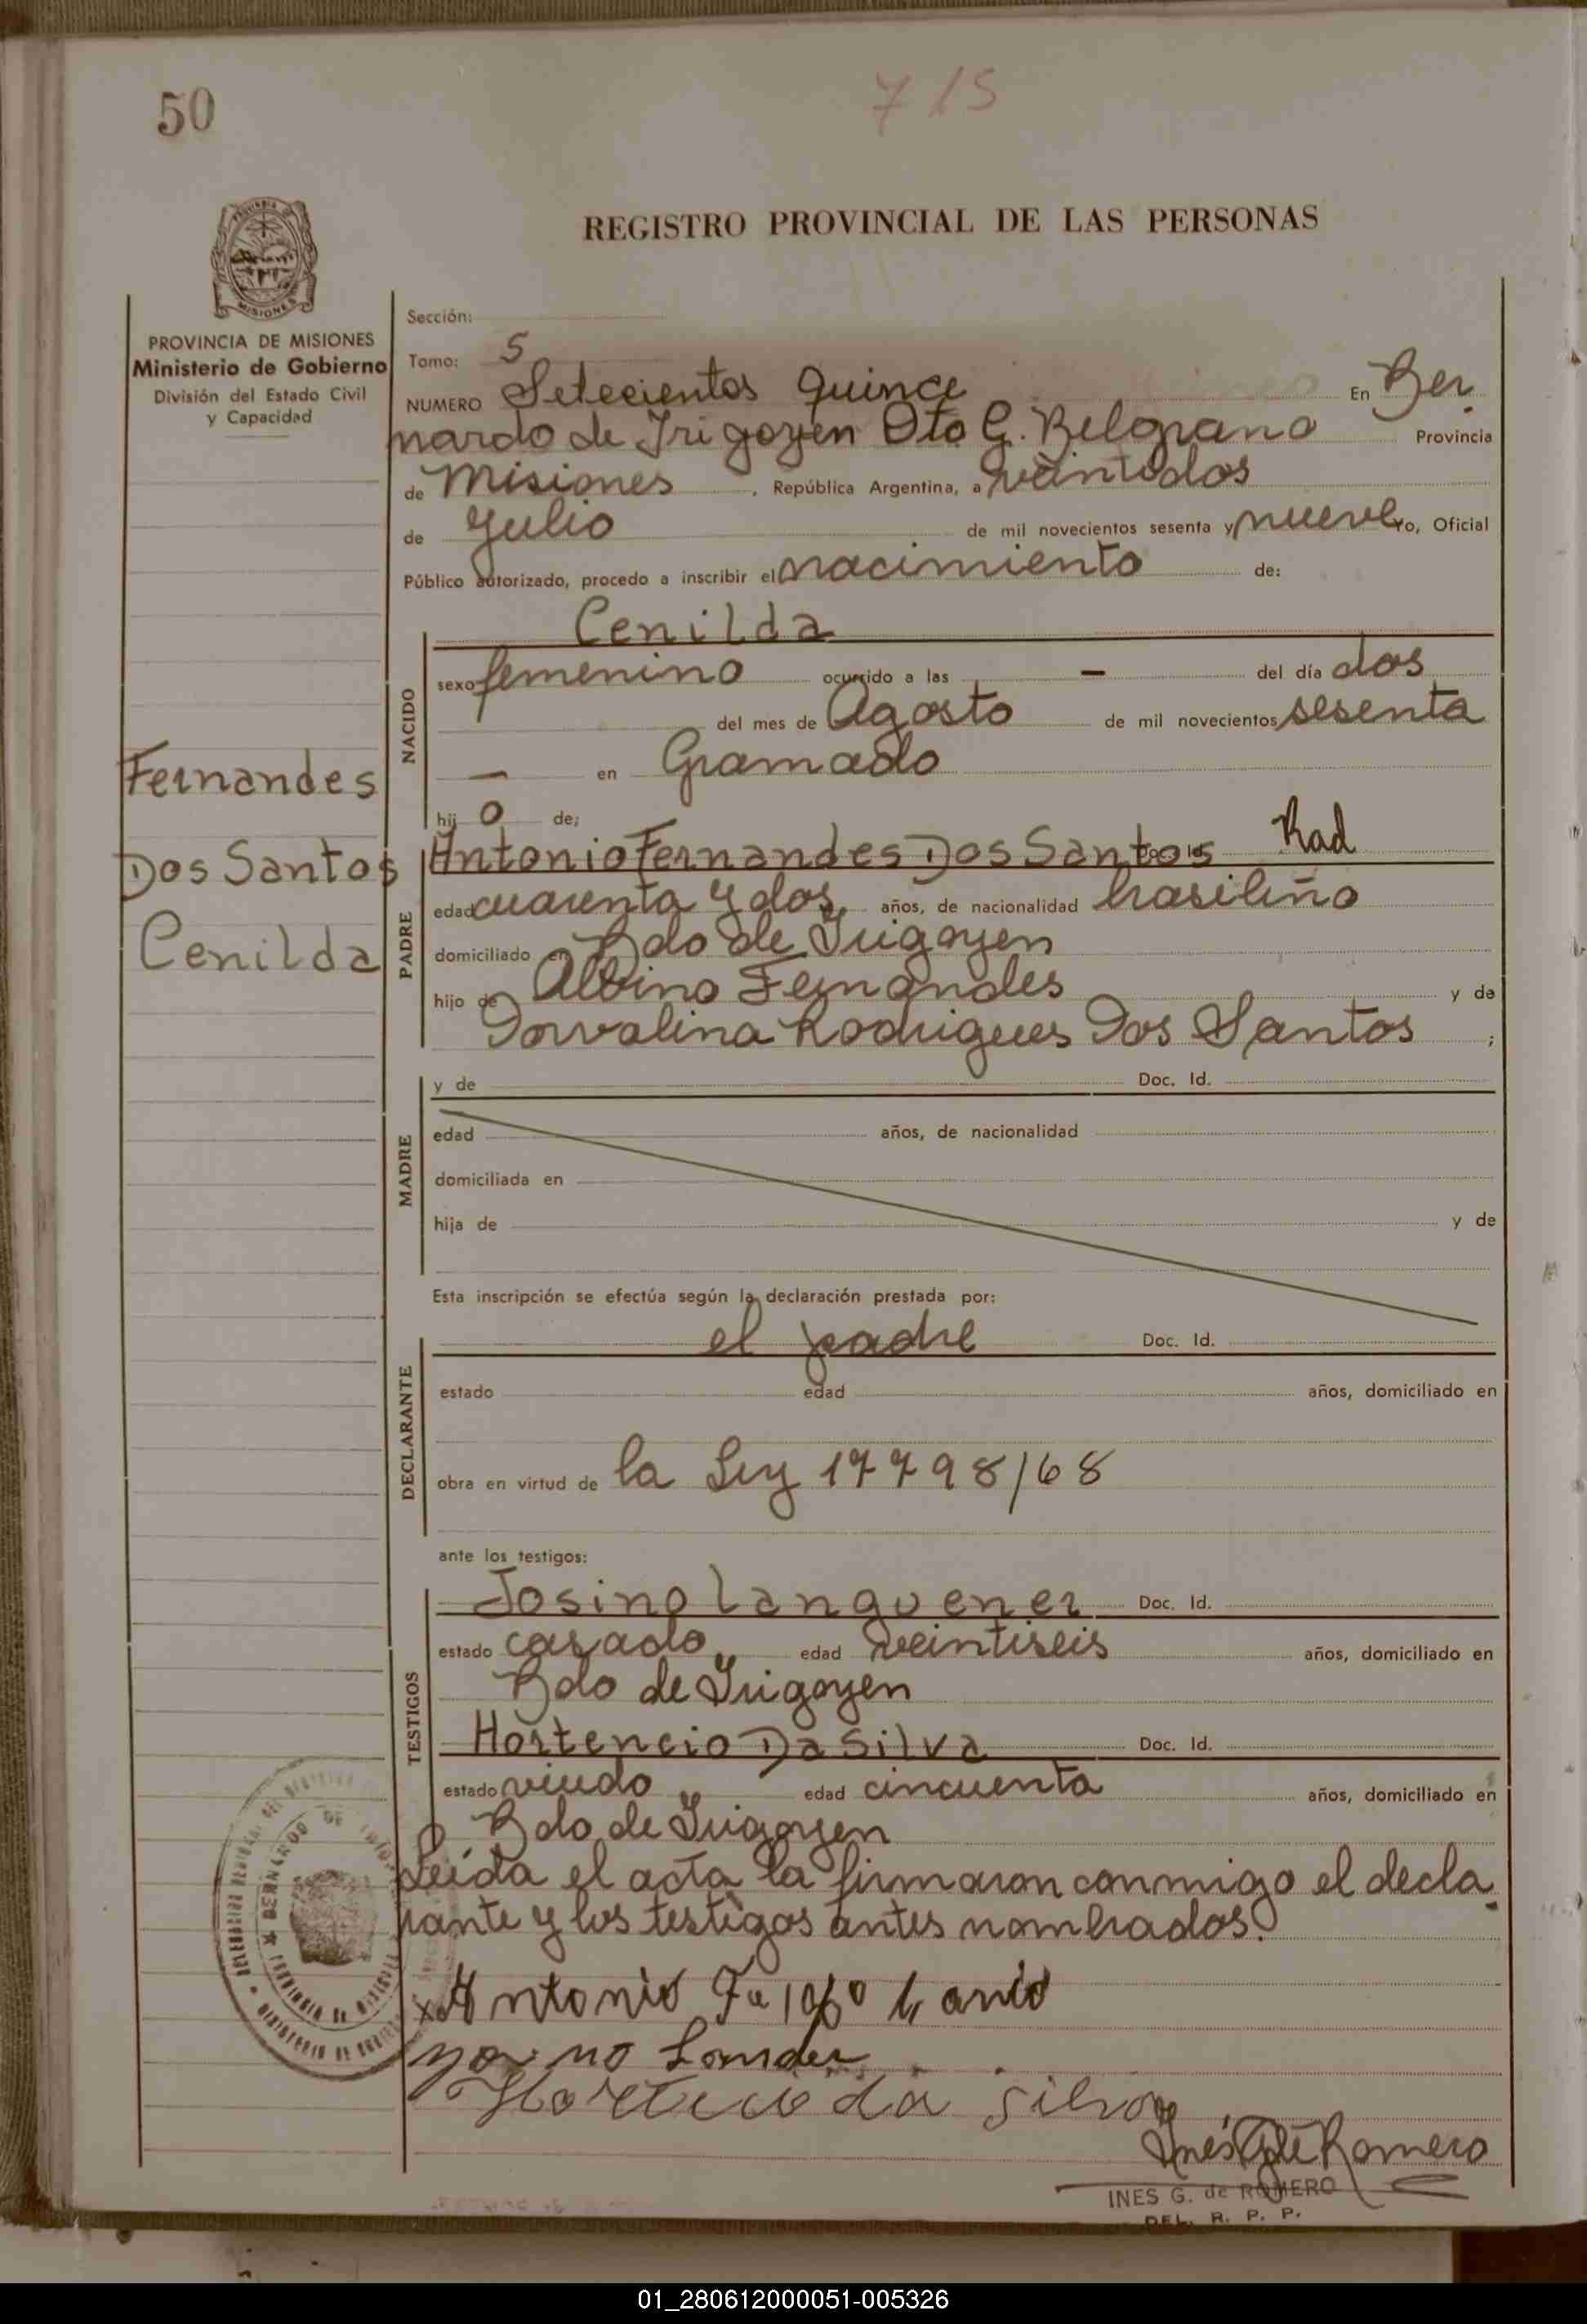 50
715
REGISTRO PROVINCIAL DE LAS PERSONAS
MISIONES
PROVINCIA DE MISIONES
Ministerio de Gobierno
División del Estado Civil
y Capacidad
Fernandes
Dos Santos
Cenilda
Sección:
Tomo: 5
NUMERO Setecientos Quince En Ber
nardo de Irigoyen Dto G. Belgrano Provincia
de Misiones, República Argentina, a veintidos
de Julio de mil novecientos sesenta y nueve Yo, Oficial
Público autorizado, procedo a inscribir el nacimiento de:
Cenilda
NACIDO
sexo femenino ocurrido a las — del día dos
del mes de Agosto de mil novecientos sesenta
— en Gramado
hij o de;
PADRE
Antonio Fernandes Dos Santos Rad
edad cuarenta y dos años, de nacionalidad brasileño
domiciliado en Bdo de Irigoyen
hijo de Albino Fernandes y de
Dorvalina Rodrigues Dos Santos ;
MADRE
y de Doc. Id.
edad años, de nacionalidad
domiciliada en
hija de y de
Esta inscripción se efectúa según la declaración prestada por:
DECLARANTE
el padre Doc. Id.
estado edad años, domiciliado en
obra en virtud de la Ley 17798/68
ante los testigos:
TESTIGOS
Josino Languener Doc. Id.
estado casado edad veintiseis años, domiciliado en
Bdo de Irigoyen
Hortencio Da Silva Doc. Id.
estado viudo edad cincuenta años, domiciliado en
Bdo de Irigoyen
Leída el acta la firmaron conmigo el decla
rante y los testigos antes nombrados.
x Antonio
Hortencio da Silva
Inés G de Romero
INES G. de ROMERO
DEL. R. P. P.
01_280612000051-005326